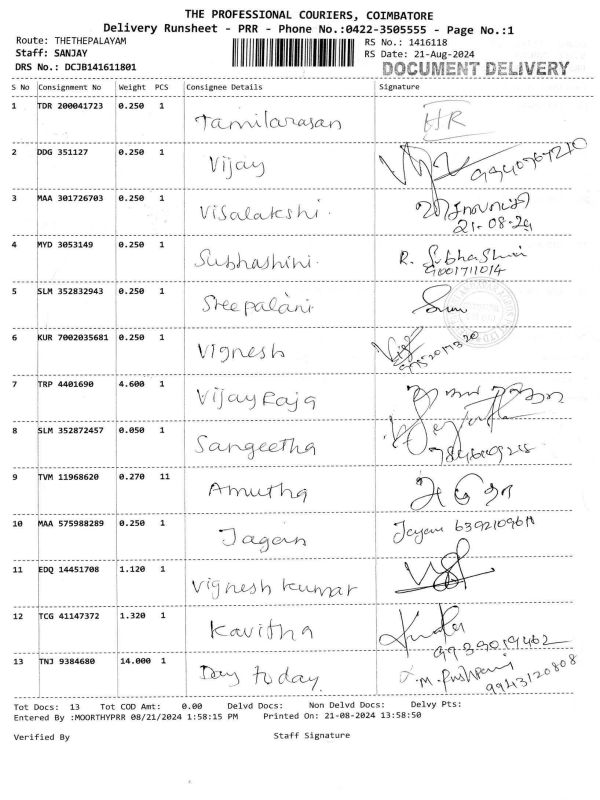 THE PROFESSIONAL COURIERS, COIMBATORE
Delivery Runsheet - PRR - Phone No.:0422-3505555 - Page No.:1
Route: THETHEPALAYAM RS No.: 1416118
Staff: SANJAY RS Date: 21-Aug-2024
DRS No.: DCJB141611801 DOCUMENT DELIVERY
S No Consignment No Weight PCS Consignee Details Signature
1 TDR 200041723 0.250 1 Tamilarasan HR
2 DDG 351127 0.250 1 Vijay
3 MAA 301726703 0.250 1 Visalakshi.
21-08-24
4 MYD 3053149 0.250 1 Subhashini. R. Subhashini
9001711014
5 SLM 352832943 0.250 1 Sreepalani
6 KUR 7002035681 0.250 1 Vignesh
7 TRP 4401690 4.600 1 Vijay Raja
8 SLM 352872457 0.050 1 Sangeetha
9 TVM 11968620 0.270 11 Amutha
10 MAA 575988289 0.250 1 Jagan
11 EDQ 14451708 1.120 1 Vignesh kumar
12 TCG 41147372 1.320 1 Kavitha
9939019462
13 TNJ 9384680 14.000 1 Day today
9943120808
Tot Docs: 13 Tot COD Amt: 0.00 Delvd Docs: Non Delvd Docs: Delvy Pts:
Entered By :MOORTHYPRR 08/21/2024 1:58:15 PM Printed On: 21-08-2024 13:58:50
Verified By Staff Signature